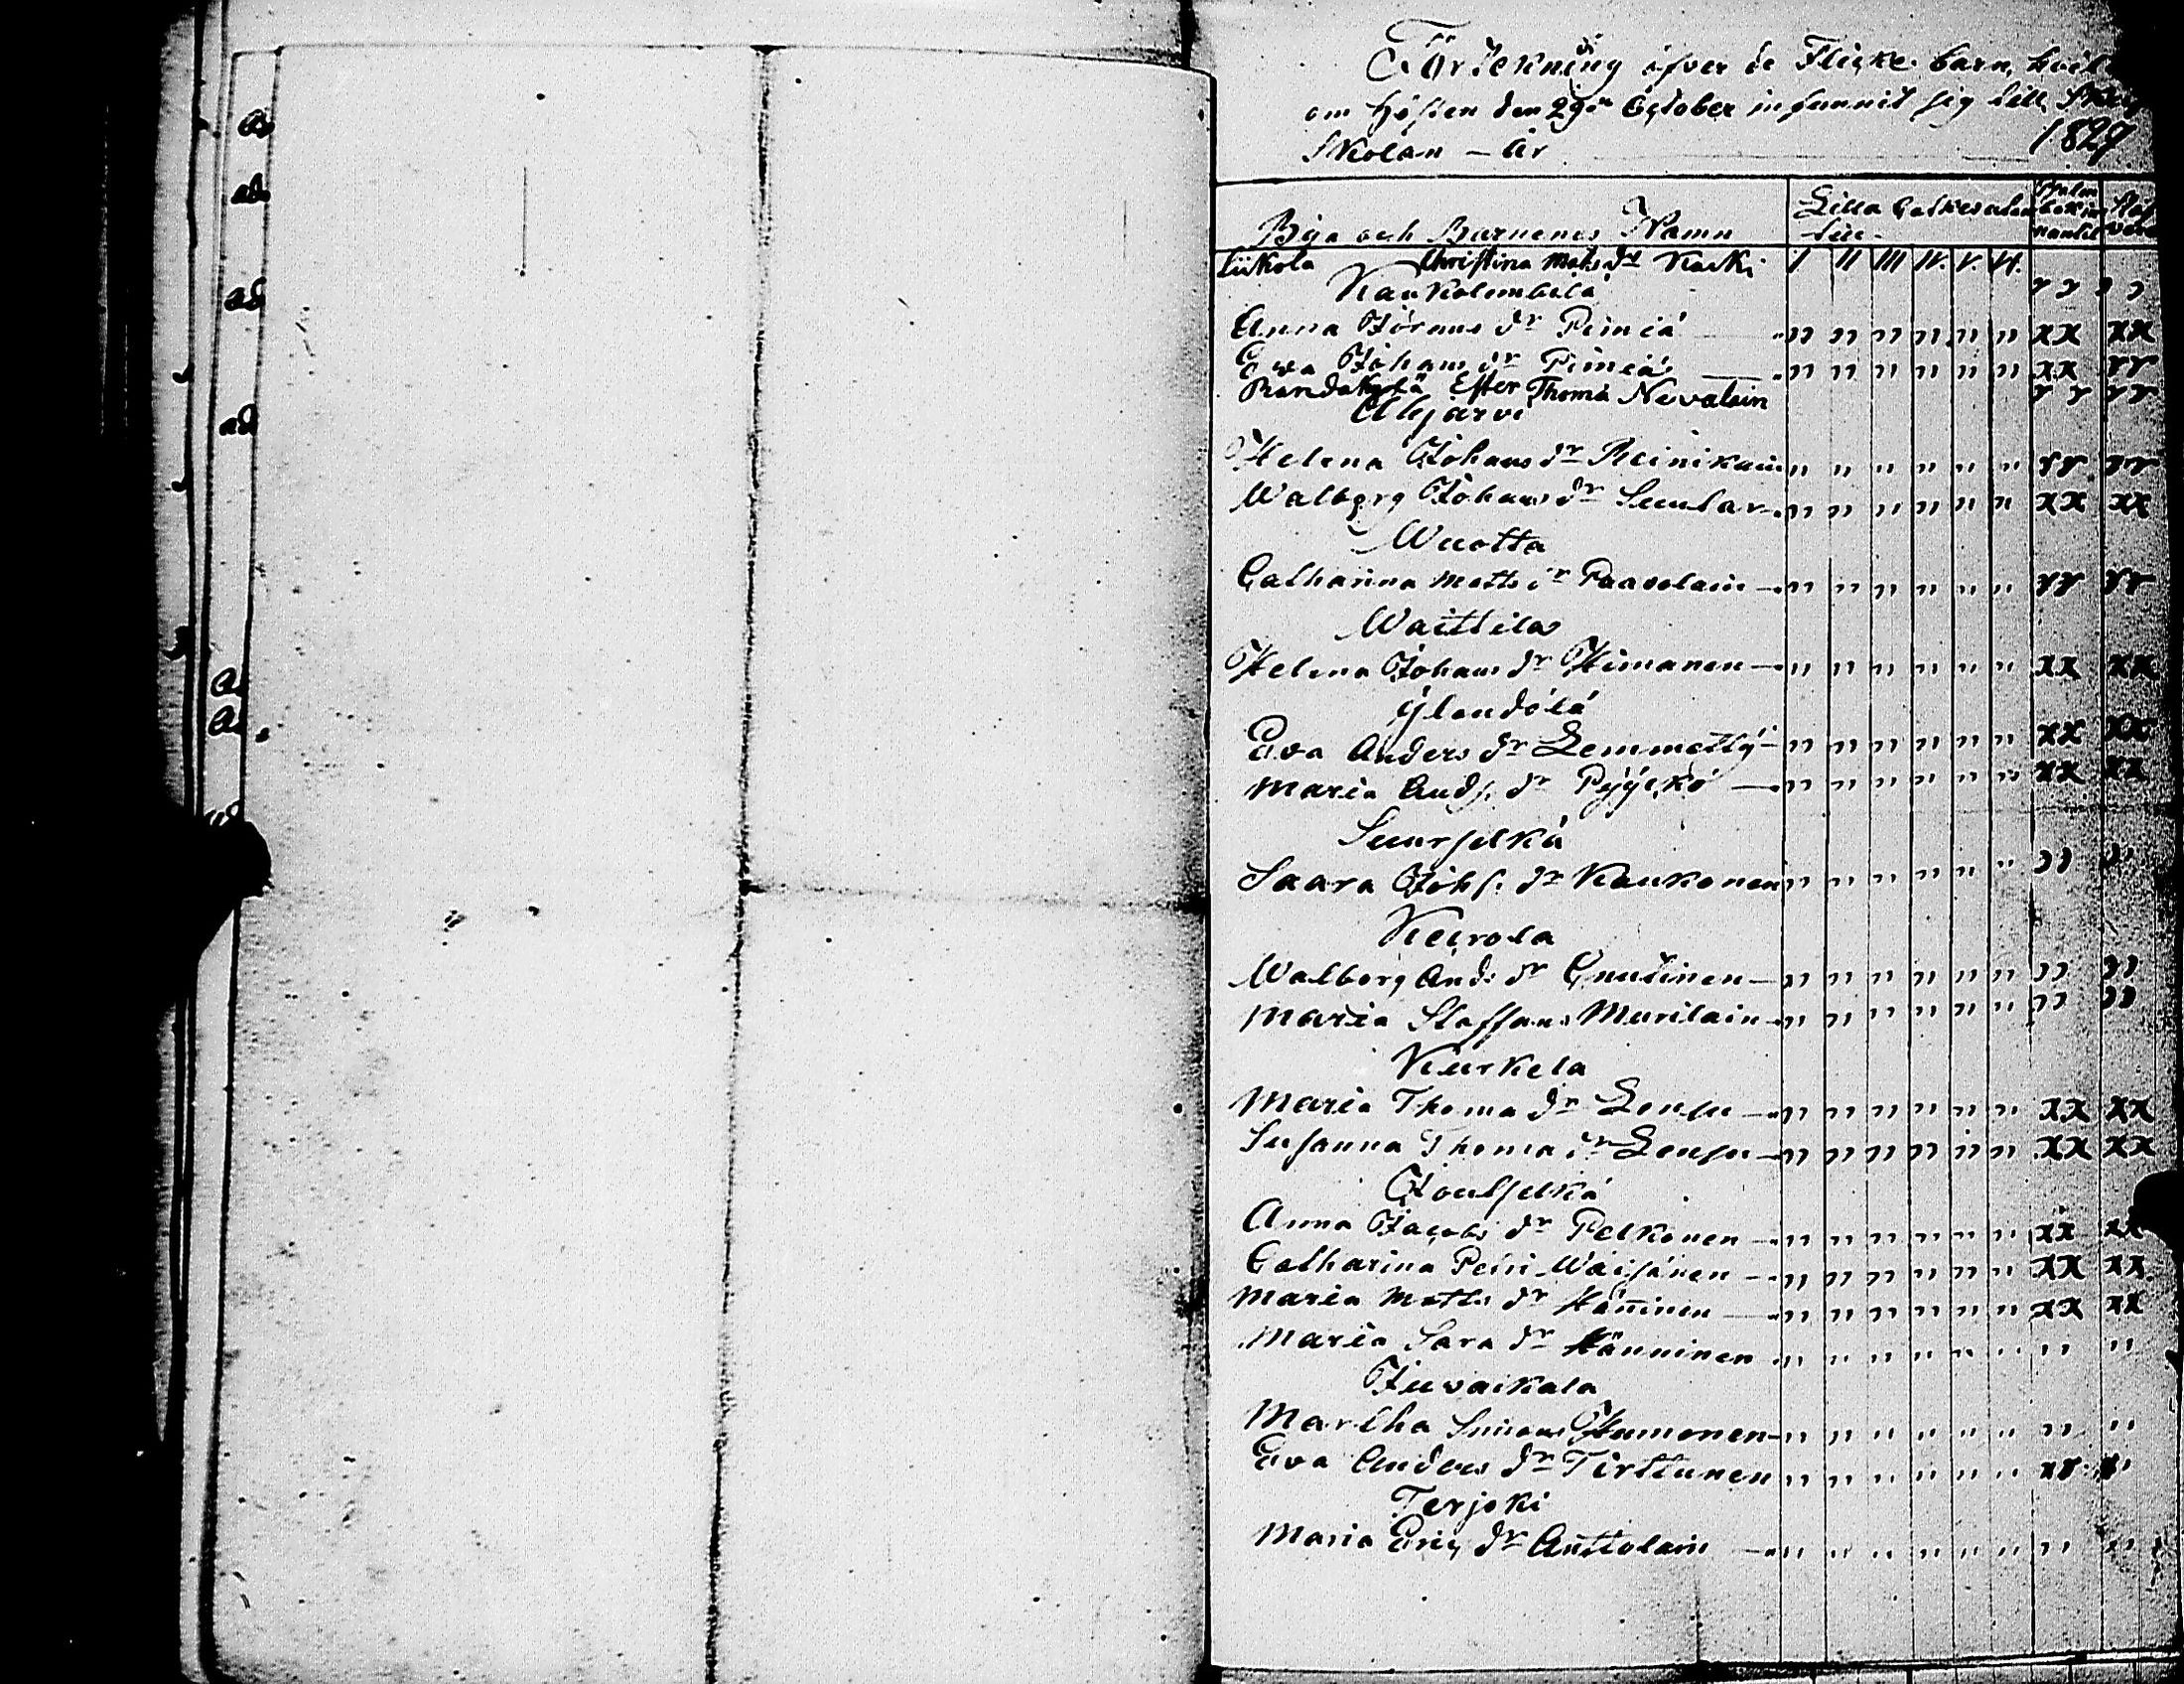 Förtekning öfver de Flicke barn, hvilk
om hösten den 29de October infunnit sig till Skrift
Skolan - År 1829
Byia och Barnenes Namn
Lilla Catkesalen
I II III IV. V. VI.
Liikola Christina Mats dr Kaski
Kaukolembelä
Anna Görans dr Pimiä " " " " " " xx xx
Eva Johans dr Pimiä " " " " " " xx rr
Randakylä Ester Thoma Nevalain rr rr
Alajärvi
Helena Johans dr Reinikain " " " " " " rr rr
Walborg Johans dr Suutar " " " " " " xx xx
Wuotta
Catharina Matts dr Paavolain " " " " " " rr rr
Waittila
Helena Johans dr Himanen " " " " " " xx xx
Ylendölä
Eva Anders dr Lemmetty " " " " " " xx xx
Maria Ands. dr Pyyckö " " " " " " xx xx
Suurselkä
Saara Johs. dr Kaukonen " " " " " " " "
Keirola
Walborg And: dr Gnutinen " " " " " " " "
Maria Staffans Murilain " " " " " " " "
Kurkela
Maria Thoma dr Lensu " " " " " " xx xx
Susanna Thoma dr Lensu " " " " " " xx xx
Joutselkä
Anna Jacobs dr Pelkonen " " " " " " xx xx
Catharina Petri Wäisänen " " " " " " xx xx
Maria Matts dr Hänninen " " " " " " xx xx
Maria Sara dr Hänninen " " " " " " " "
Juvaikala
Martha Simons Hamonen " " " " " " " "
Eva Anders dr Tirttunen " " " " " " xr "
Terjoki
Maria Eric dr Anttolain " " " " " " " "